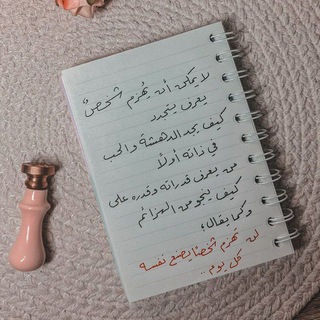 لا يمكن أن يُهزم شخصٌ
يعرف يتجدد
كيف يجد الدهشة والحب
في ذاته أولًا
من يعرف قدراته وقدره على
كيف ينجو من الهزائم
وكما يقال؛
لن تهزم شخصًا يصنع نفسه
كل يوم ..